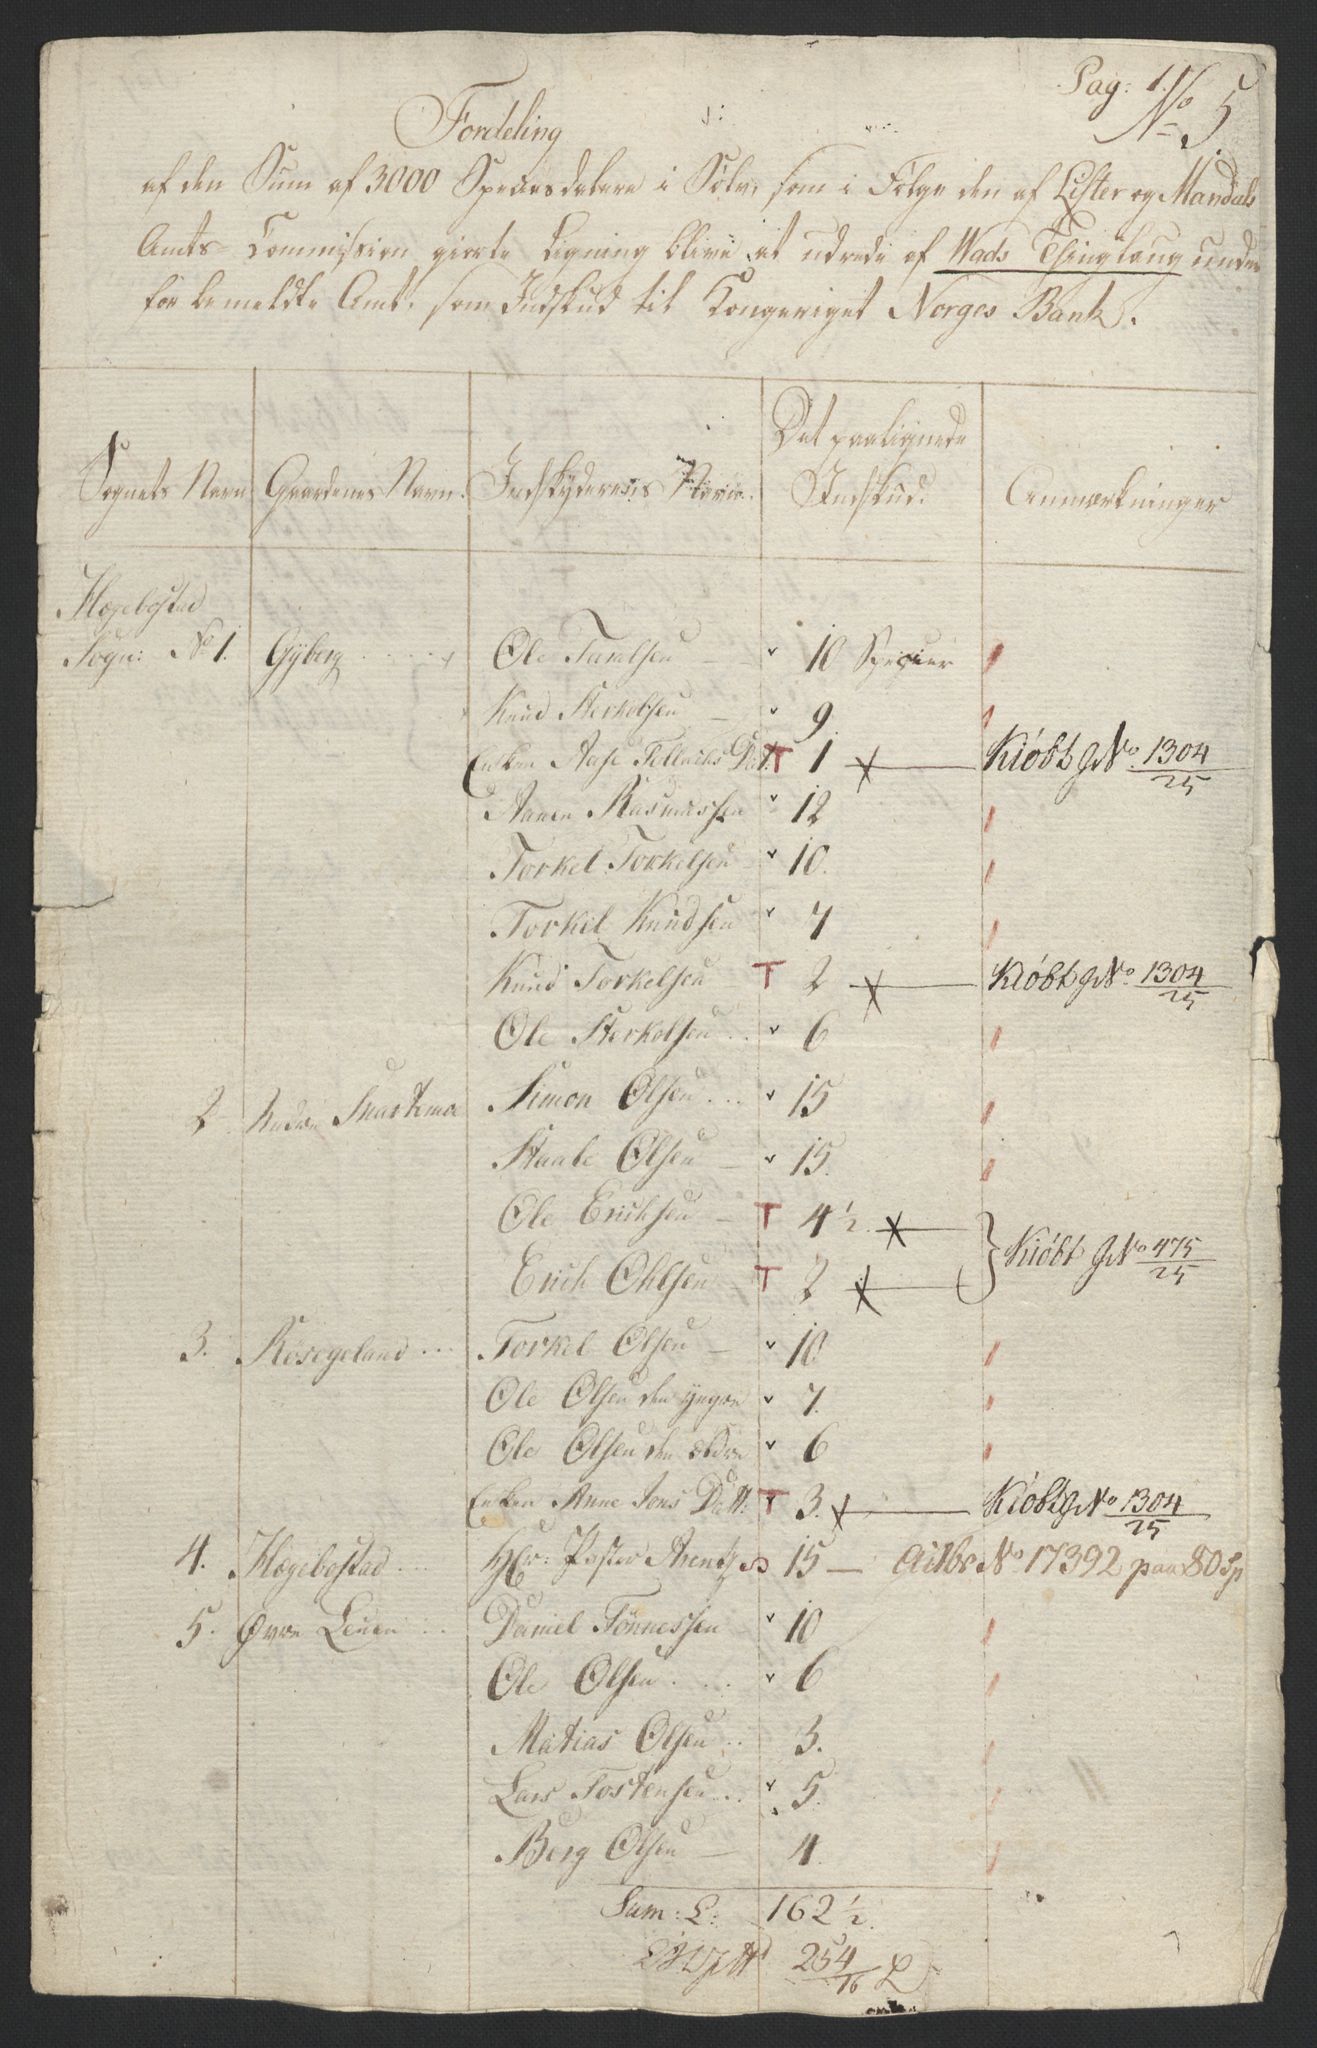 Pag: 1.
No 5.
Fordeling
af den Sum af 3000 Speciesdalere i Sölv, som i Fölge den af Lister og Mandals
Amts Commission giorte Ligning blive at udrede af Wads Thinglaug under
for bemeldte Amt, som Indskud til Kongeriget Norges Bank.
Sognets Navn Gaardenes Navn. Indskydernes Navne. Det paalignede Indskud. Anmærkninger
Hægebostad
Sogn: No 1. Gyberg Ole Tarelsen 10 Specier
Knud Sterkolsen 9.
Enken Aase Tellochs Dat. T 1 Kiöbt No 1304/25
Aanen Rasmussen 12
Torkel Torkelsen 10.
Torkel Knudsen 7
Knud Torkelsen T 2 Kiöbt No 1304/25
Ole Sterkolsen 6
2 Nedre Snartemoe Simon Olsen 15
Staale Olsen 15.
Ole Erichsen T 4½. Kiöbt No 475/25
Erich Ohlsen T 2
3. Røsegeland Torkel Olsen 10.
Ole Olsen den yngre 7.
Ole Olsen den ældre 6
Enken Anne Jons Datt: T 3. Kiöbt No 1304/25
4. Hægebostad Hr: Pastor Arentz 15 No 17392 paa 80 Sp
5. Øvre Leuen Daniel Tønnessen 10
Ole Olsen 6
Matias Olsen 3.
Lars Tostensen 5.
Berg Olsen 4.
Sum: L: 162½.
254/16